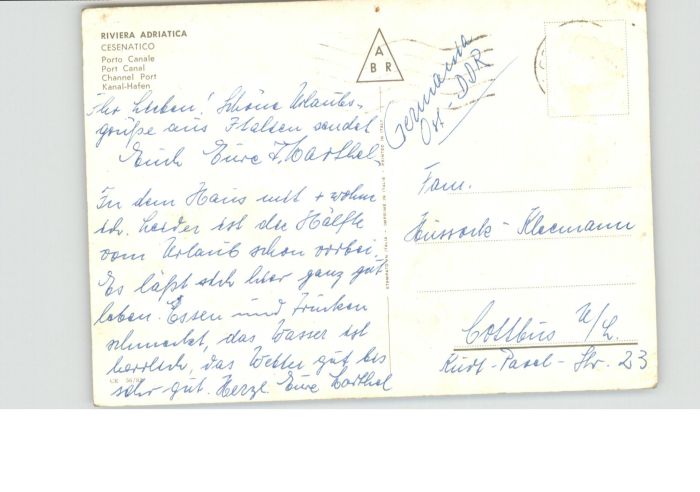 RIVIERA ADRIATICA
CESENATICO
Porto Canale
Port Canal
Channel Port
Kanal-Hafen
A
B R
Ihr Lieben! Schöne Urlaubs-
grüße aus Italien sendet
Euch Eure T. Marthel.
In dem Haus mit + wohne
ich. Leider ist die Hälfte
vom Urlaub schon vorbei.
Es läßt sich hier ganz gut
leben. Essen und Trinken
schmeckt, das Wasser ist
herrlich, das Wetter gut bis
sehr gut. Herzl. Eure Marthel
Germania
Ost DDR
Fam.
Kleemann
Cottbus N/L.
Str. 23
PRINTED IN ITALY